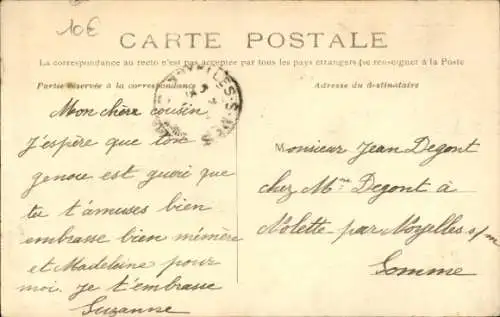 10€
CARTE POSTALE
La correspondance au recto n'est pas acceptée par tous les pays étrangers (se renseigner à la Poste
Partie réservée à la correspondance
Adresse du destinataire
NOYELLES-S-MER
Mon chère cousin
j'espère que ton
genou est guéri que
tu t'amuses bien
embrasse bien mémère
et Madeleine pour
moi. je t'embrasse
Suzanne
Monsieur Jean Degont
chez Mme Degont à
Nolette par Noyelles s/m
Somme